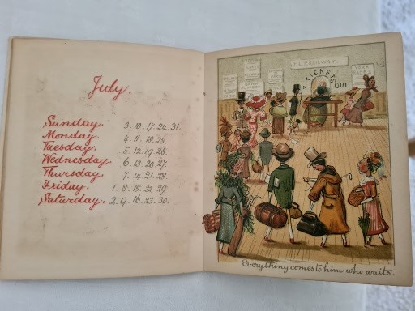 July.
Sunday. 3. 10. 17. 24. 31.
Monday. 4. 11. 18. 25.
Tuesday. 5. 12. 19. 26.
Wednesday. 6. 13. 20. 27.
Thursday. 7. 14. 21. 28.
Friday. 1. 8. 15. 22. 29.
Saturday. 2. 9. 16. 23. 30.
Everything comes to him who waits.